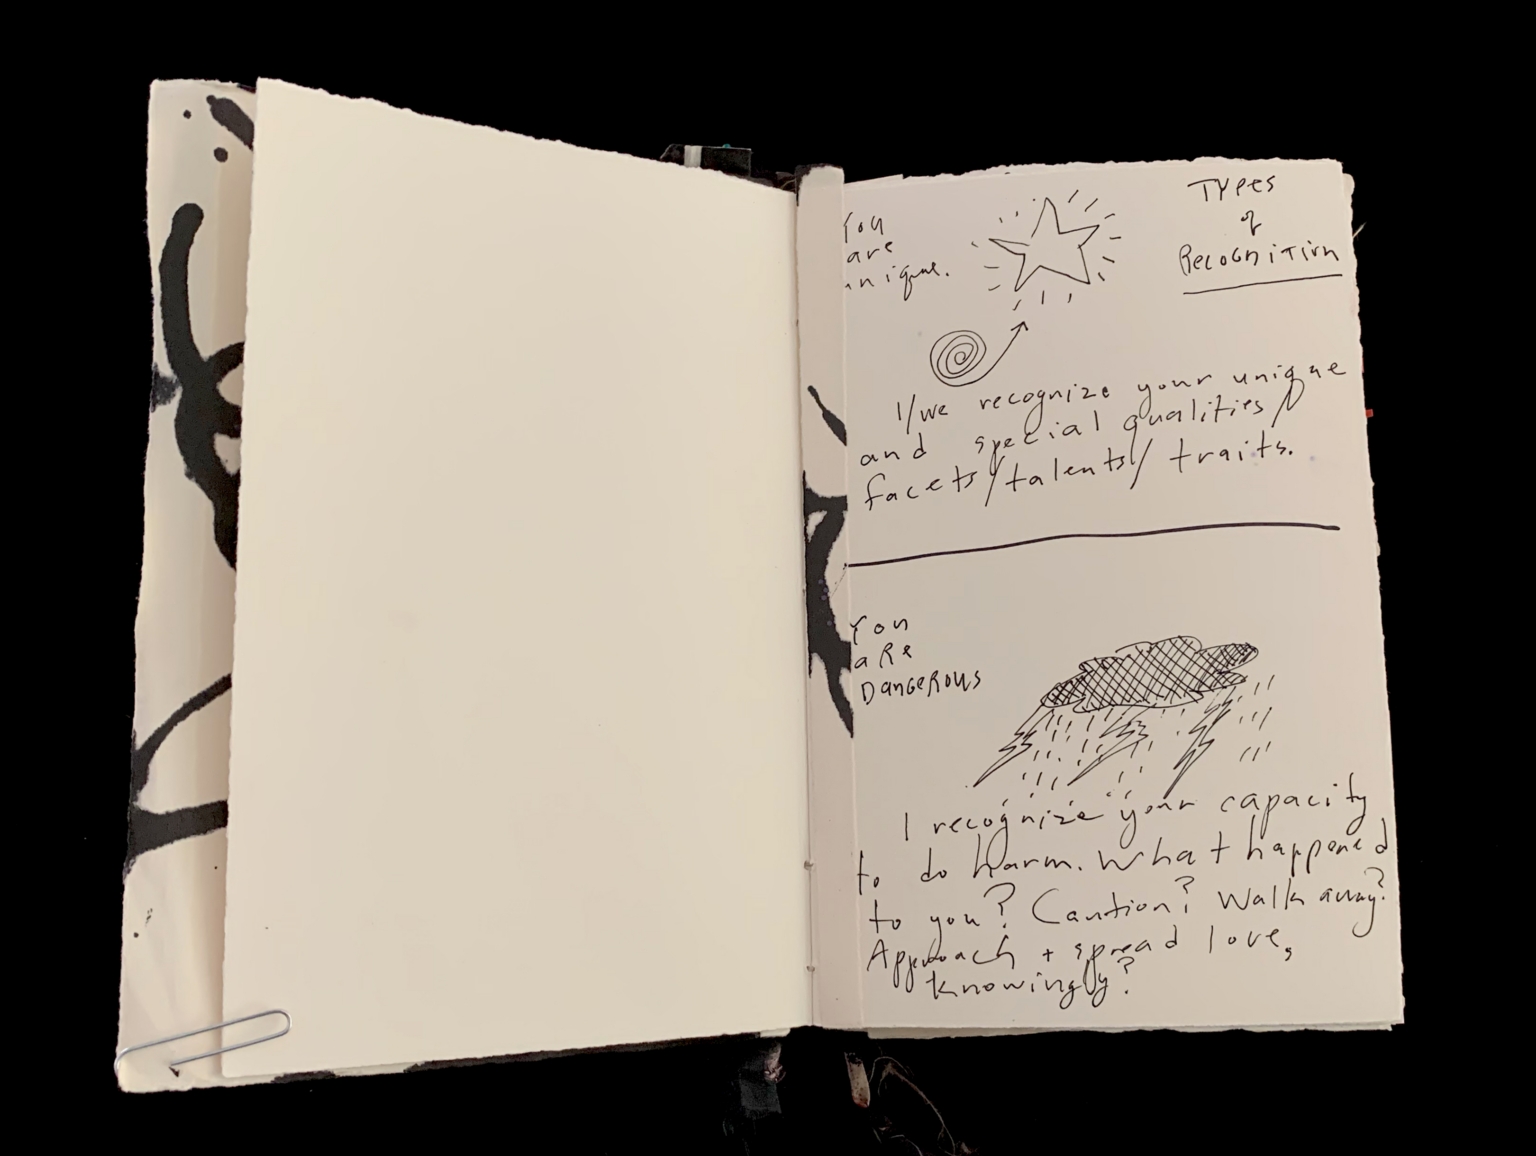 You
are
unique.
Types
of
Recognition
I/we recognize your unique
and special qualities/
facets/talents/traits.
You
aRe
DangeRous
I recognize your capacity
to do harm. What happened
to you? Caution? Walk away?
Approach + spread love,
knowingly?